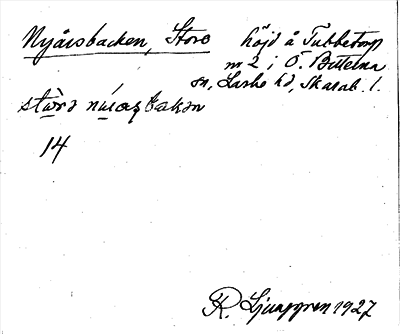 Nyårsbacken, Store höjd å Tubbetorp
nr 2 i Ö. Bitterna
sn, Laske hd, Skarab. l.
14
R. Ljunggren 1927